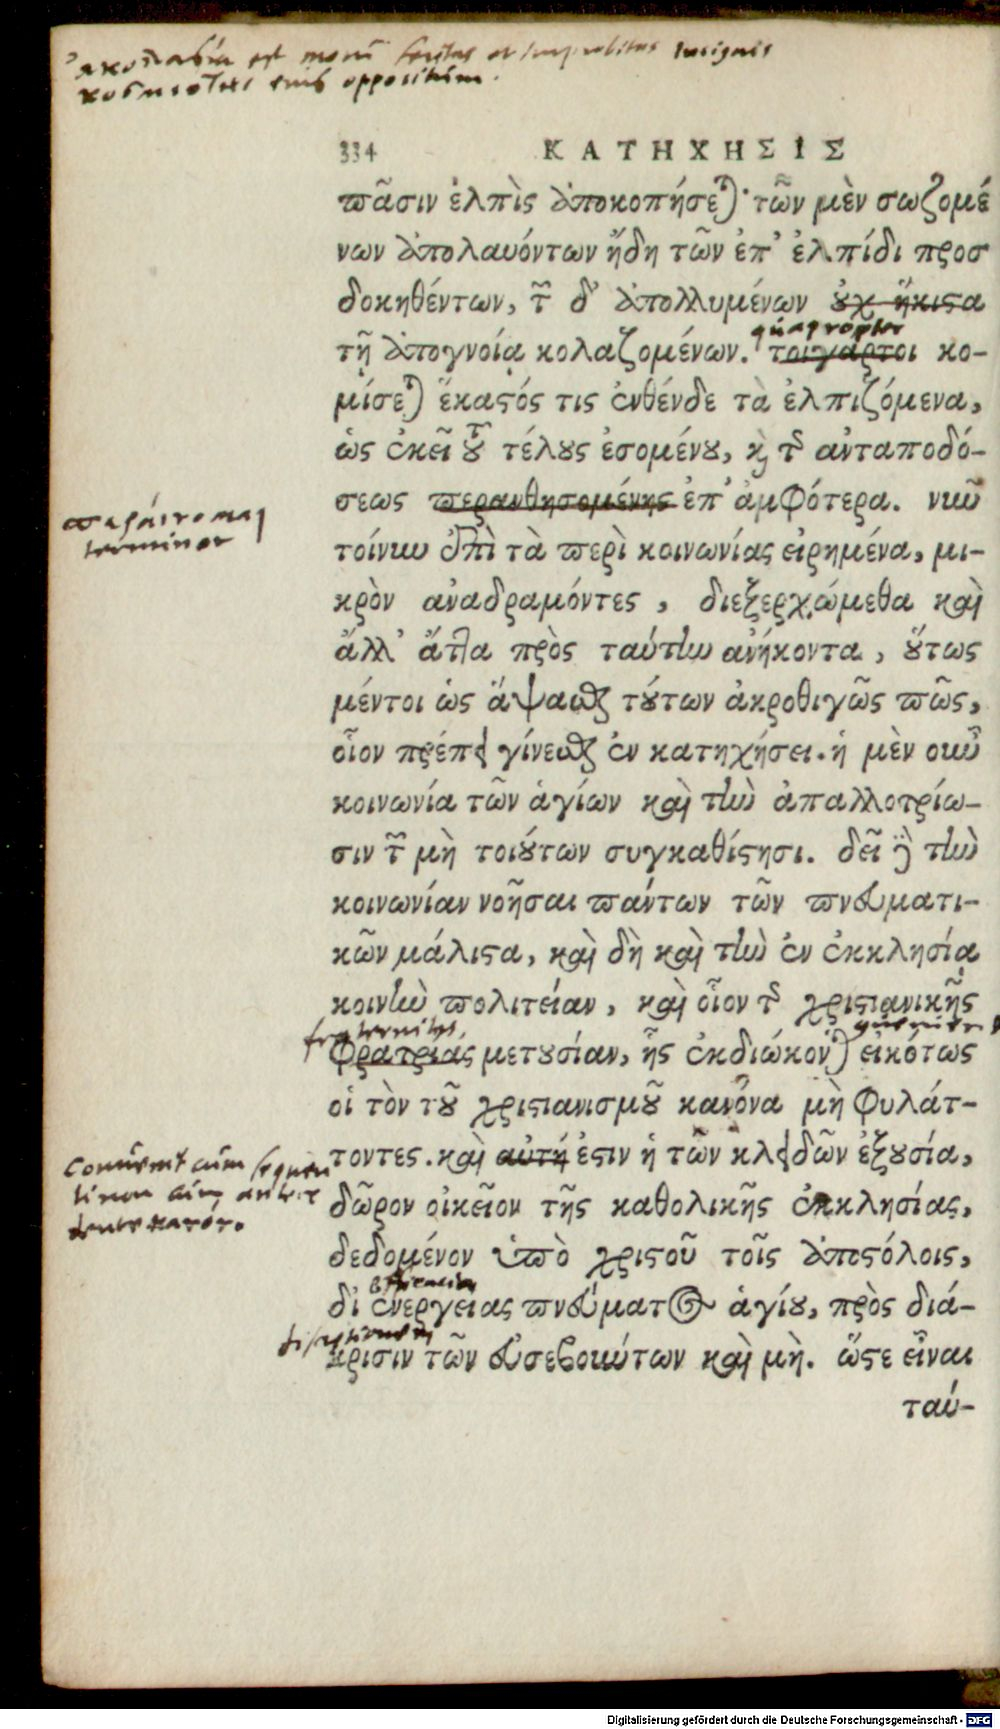 est
insignis
eius oppositum.
334 ΚΑΤΗΧΗΣΙΣ
πᾶσιν ἐλπὶς ἀποκοπήσεται· τῶν μὲν σωζομέ
νων ἀπολαυόντων ἤδη τῶν ἐπ' ἐλπίδι προσ
δοκηθέντων, τῶν δ' ἀπολλυμένων οὐχ ἥκιστα
quapropter
τῇ ἀπογνοίᾳ κολαζομένων. τοιγάρτοι κο-
μίσεται ἕκαστός τις ἐνθένδε τὰ ἐλπιζόμενα,
ὡς ἐκεῖ τοῦ τέλους ἐσομένου, καὶ τῆς ἀνταποδό-
σεως περανθησομένης ἐπ' ἀμφότερα. νῦν
περαίνομαι
terminor
τοίνυν ἐπὶ τὰ περὶ κοινωνίας εἰρημένα, μι-
κρὸν ἀναδραμόντες, διεξερχώμεθα καὶ
ἄλλ' ἄττα πρὸς ταύτην ἀνήκοντα, οὕτως
μέντοι ὡς ἅψασθαι τούτων ἀκροθιγῶς πῶς,
οἷον πρέπει γίνεσθαι ἐν κατηχήσει. ἡ μὲν οὖν
κοινωνία τῶν ἁγίων καὶ τὴν ἀπαλλοτρίω-
σιν τῶν μὴ τοιούτων συγκαθίστησι. δεῖ γὰρ τὴν
κοινωνίαν νοῆσαι πάντων τῶν πνευματι-
κῶν μάλιστα, καὶ δὴ καὶ τὴν ἐν ἐκκλησίᾳ
κοινὴν πολιτείαν, καὶ οἷον τῆς χριστιανικῆς
fraternitatis
φρατριάς μετουσίαν, ἧς ἐκδιώκονται εἰκότως
οἱ τὸν τοῦ χριστιανισμοῦ κανόνα μὴ φυλάτ-
τοντες. καὶ αὐτή ἐστιν ἡ τῶν κλειδῶν ἐξουσία,
δῶρον οἰκεῖον τῆς καθολικῆς ἐκκλησίας,
δεδομένον ὑπὸ χριστοῦ τοῖς ἀποστόλοις,
δι' ἐνεργείας πνεύματος ἁγίου, πρὸς διά-
κρισιν τῶν εὐσεβούντων καὶ μὴ. ὥστε εἶναι
ταύ-
Digitalisierung gefördert durch die Deutsche Forschungsgemeinschaft - DFG